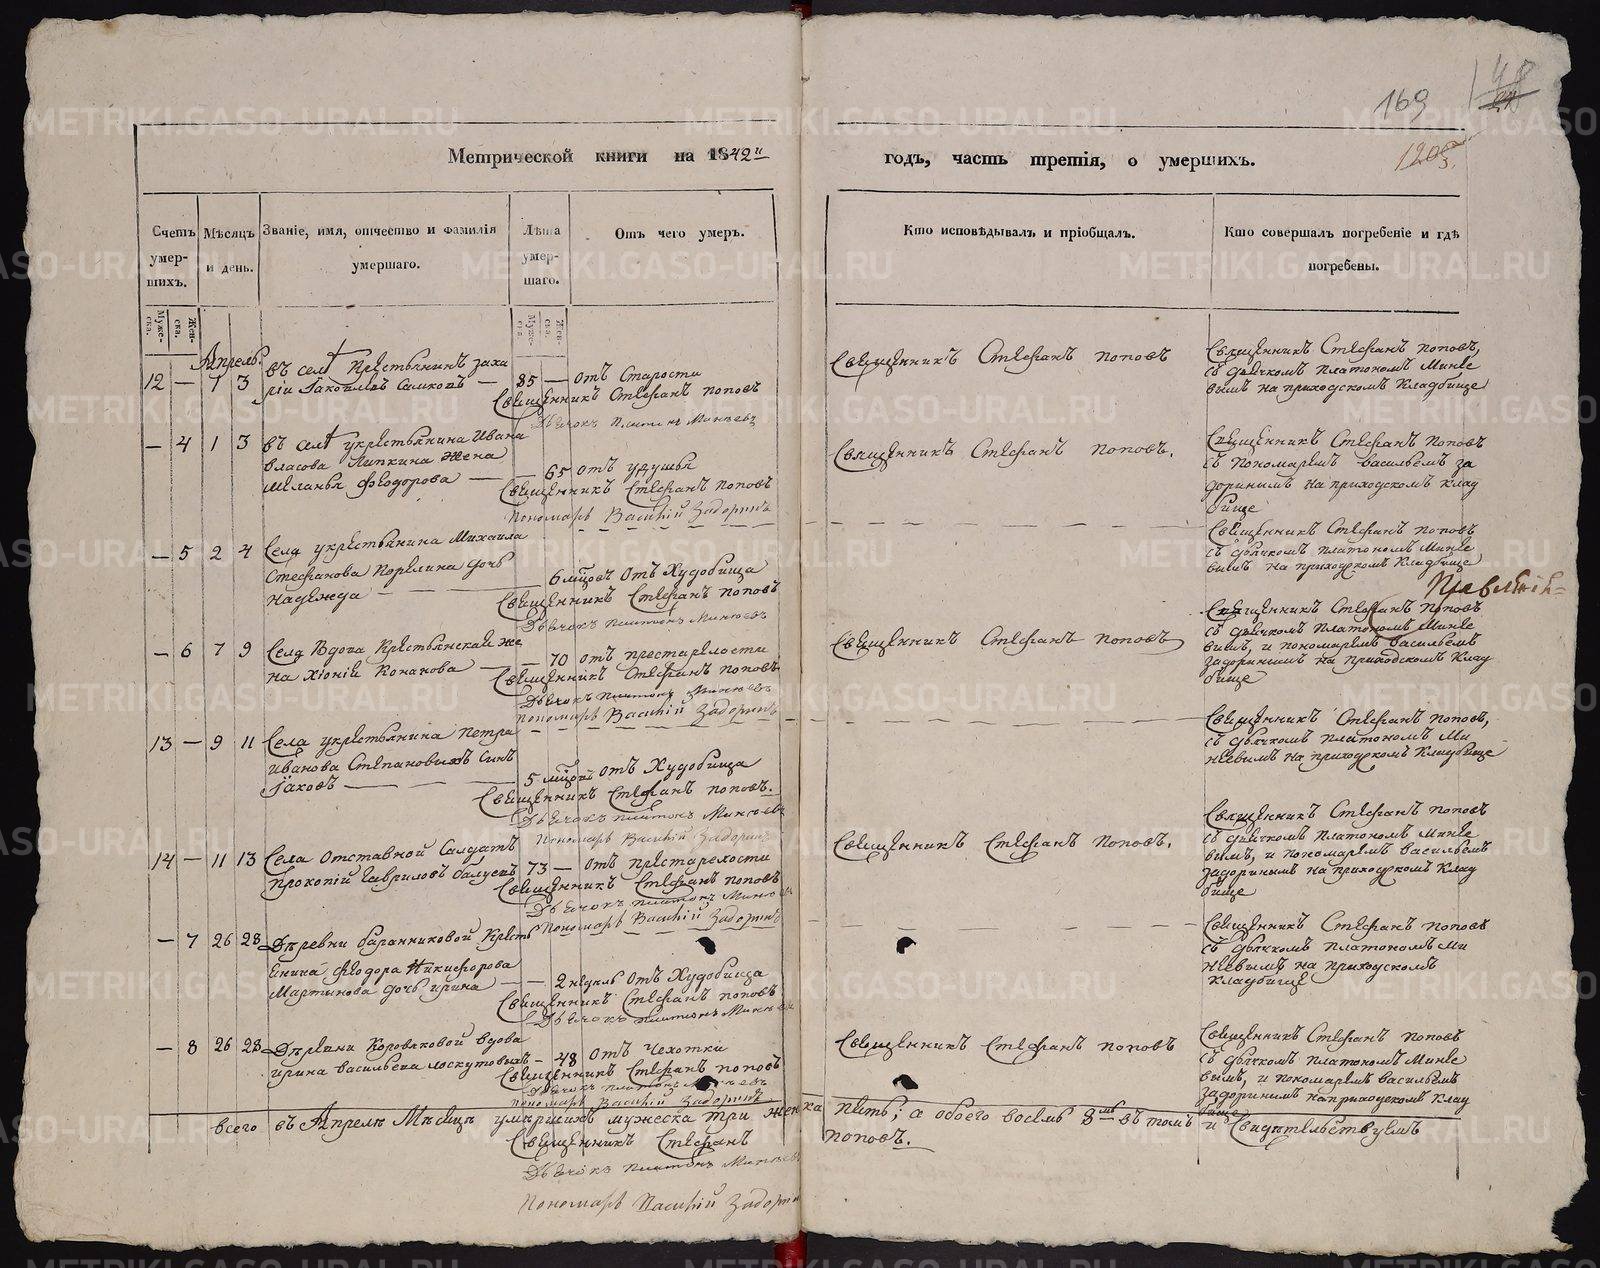 169
1203.
Метрической книги на 1842й годъ, часть третія, о умершихъ.
Счетъ умерших.
Мѣсяцъ и день.
Званіе, имя, отчество и фамилія умершаго.
Лѣта умершаго.
Отъ чего умеръ.
Кто исповѣдывалъ и пріобщалъ.
Кто совершалъ погребеніе и гдѣ погребены.
Муже-ска.
Жен-ска.
Муже-ска.
Жен-ска.
Апрель.
12 — 1 3
въ селѣ Крестьянинъ заха
рій Іаковлевъ — 85 — отъ Старости
Священникъ Стефанъ поповъ
Дьячокъ Платонъ Минѣевъ
Священникъ Стефанъ поповъ
Священникъ Стефанъ поповъ,
съ дьячкомъ платономъ Минѣе
вымъ на приходскомъ Кладбище
— 4 1 3
въ селѣ укрестьянина Ивана
власова Липкина жена
меланья феодорова — — 65 отъ удушья
Священникъ Стефанъ поповъ
Пономарь Василій Задоринъ
Священникъ Стефанъ поповъ.
Священникъ Стефанъ поповъ
съ пономаремъ васильемъ за
доринымъ на приходскомъ клад
бище
— 5 2 4
Села укрестьянина Михаила
Стефанова Порелина дочь
надежда — — 6 мцовъ отъ Худобища
Священникъ Стефанъ поповъ
Дьячокъ Платонъ Минѣевъ
Священникъ Стефанъ поповъ
съ дьячкомъ платономъ Минѣе
вымъ на приходскомъ Кладбище
— 6 7 9
Села Вдова Крестьянская же
на Хіонія Конанова — — 70 отъ престарелости
Священникъ Стефанъ поповъ
Дьячокъ Платонъ Минѣевъ
Пономарь Василій Задоринъ
Священникъ Стефанъ поповъ
Священникъ Стефанъ поповъ
съ дьячкомъ платономъ Минѣе
вымъ, и пономаремъ васильемъ
задоринымъ на приходскомъ Клад
бище
13 — 9 11
Села укрестьянина петра
иванова Степановыхъ Сынъ
Іаковъ — 5 мцовъ отъ Худобища
Священникъ Стефанъ поповъ.
Дьячокъ Платонъ Минѣевъ
Пономарь Василій Задоринъ
Священникъ Стефанъ поповъ,
съ дьячкомъ платономъ Ми
нѣевымъ на приходскомъ Кладбище
14 — 11 13
Села Отставной Салдатъ
прокопій Гавриловъ 73 — отъ престарелости
Священникъ Стефанъ поповъ
Дьячокъ Платонъ Минѣевъ
Пономарь Василій Задоринъ
Священникъ Стефанъ поповъ.
Священникъ Стефанъ поповъ
съ дьячкомъ платономъ Минѣе
вымъ, и пономаремъ васильемъ
задоринымъ на приходскомъ Клад
бище
— 7 26 28
Деревни баранниковой Кресть
янина феодора Никифорова
Мартынова дочь ирина — — 2 недель отъ Худобища
Священникъ Стефанъ поповъ
Дьячокъ Платонъ Минѣевъ
Священникъ Стефанъ поповъ
съ дьячкомъ платономъ Ми
нѣевымъ на приходскомъ
Кладбище
— 8 26 28
Деревни Коровяковой вдова
ирина васильева лоскутовыхъ — 48 отъ Чехотки
Священникъ Стефанъ поповъ
Дьячокъ Платонъ Минѣевъ
Пономарь Василій Задоринъ
Священникъ Стефанъ поповъ
Священникъ Стефанъ поповъ
съ дьячкомъ платономъ Минѣе
вымъ, и пономаремъ васильемъ
задоринымъ на приходскомъ Клад
бище
всего въ Апрелѣ Мѣсяцѣ умершихъ мужеска три женска пять; а обоего восемь 8мъ въ томъ и Свидѣтельствуемъ
Священникъ Стефанъ поповъ.
Дьячокъ Платонъ Минѣевъ
Пономарь Василій Задоринъ
METRIKI.GASO-URAL.RU